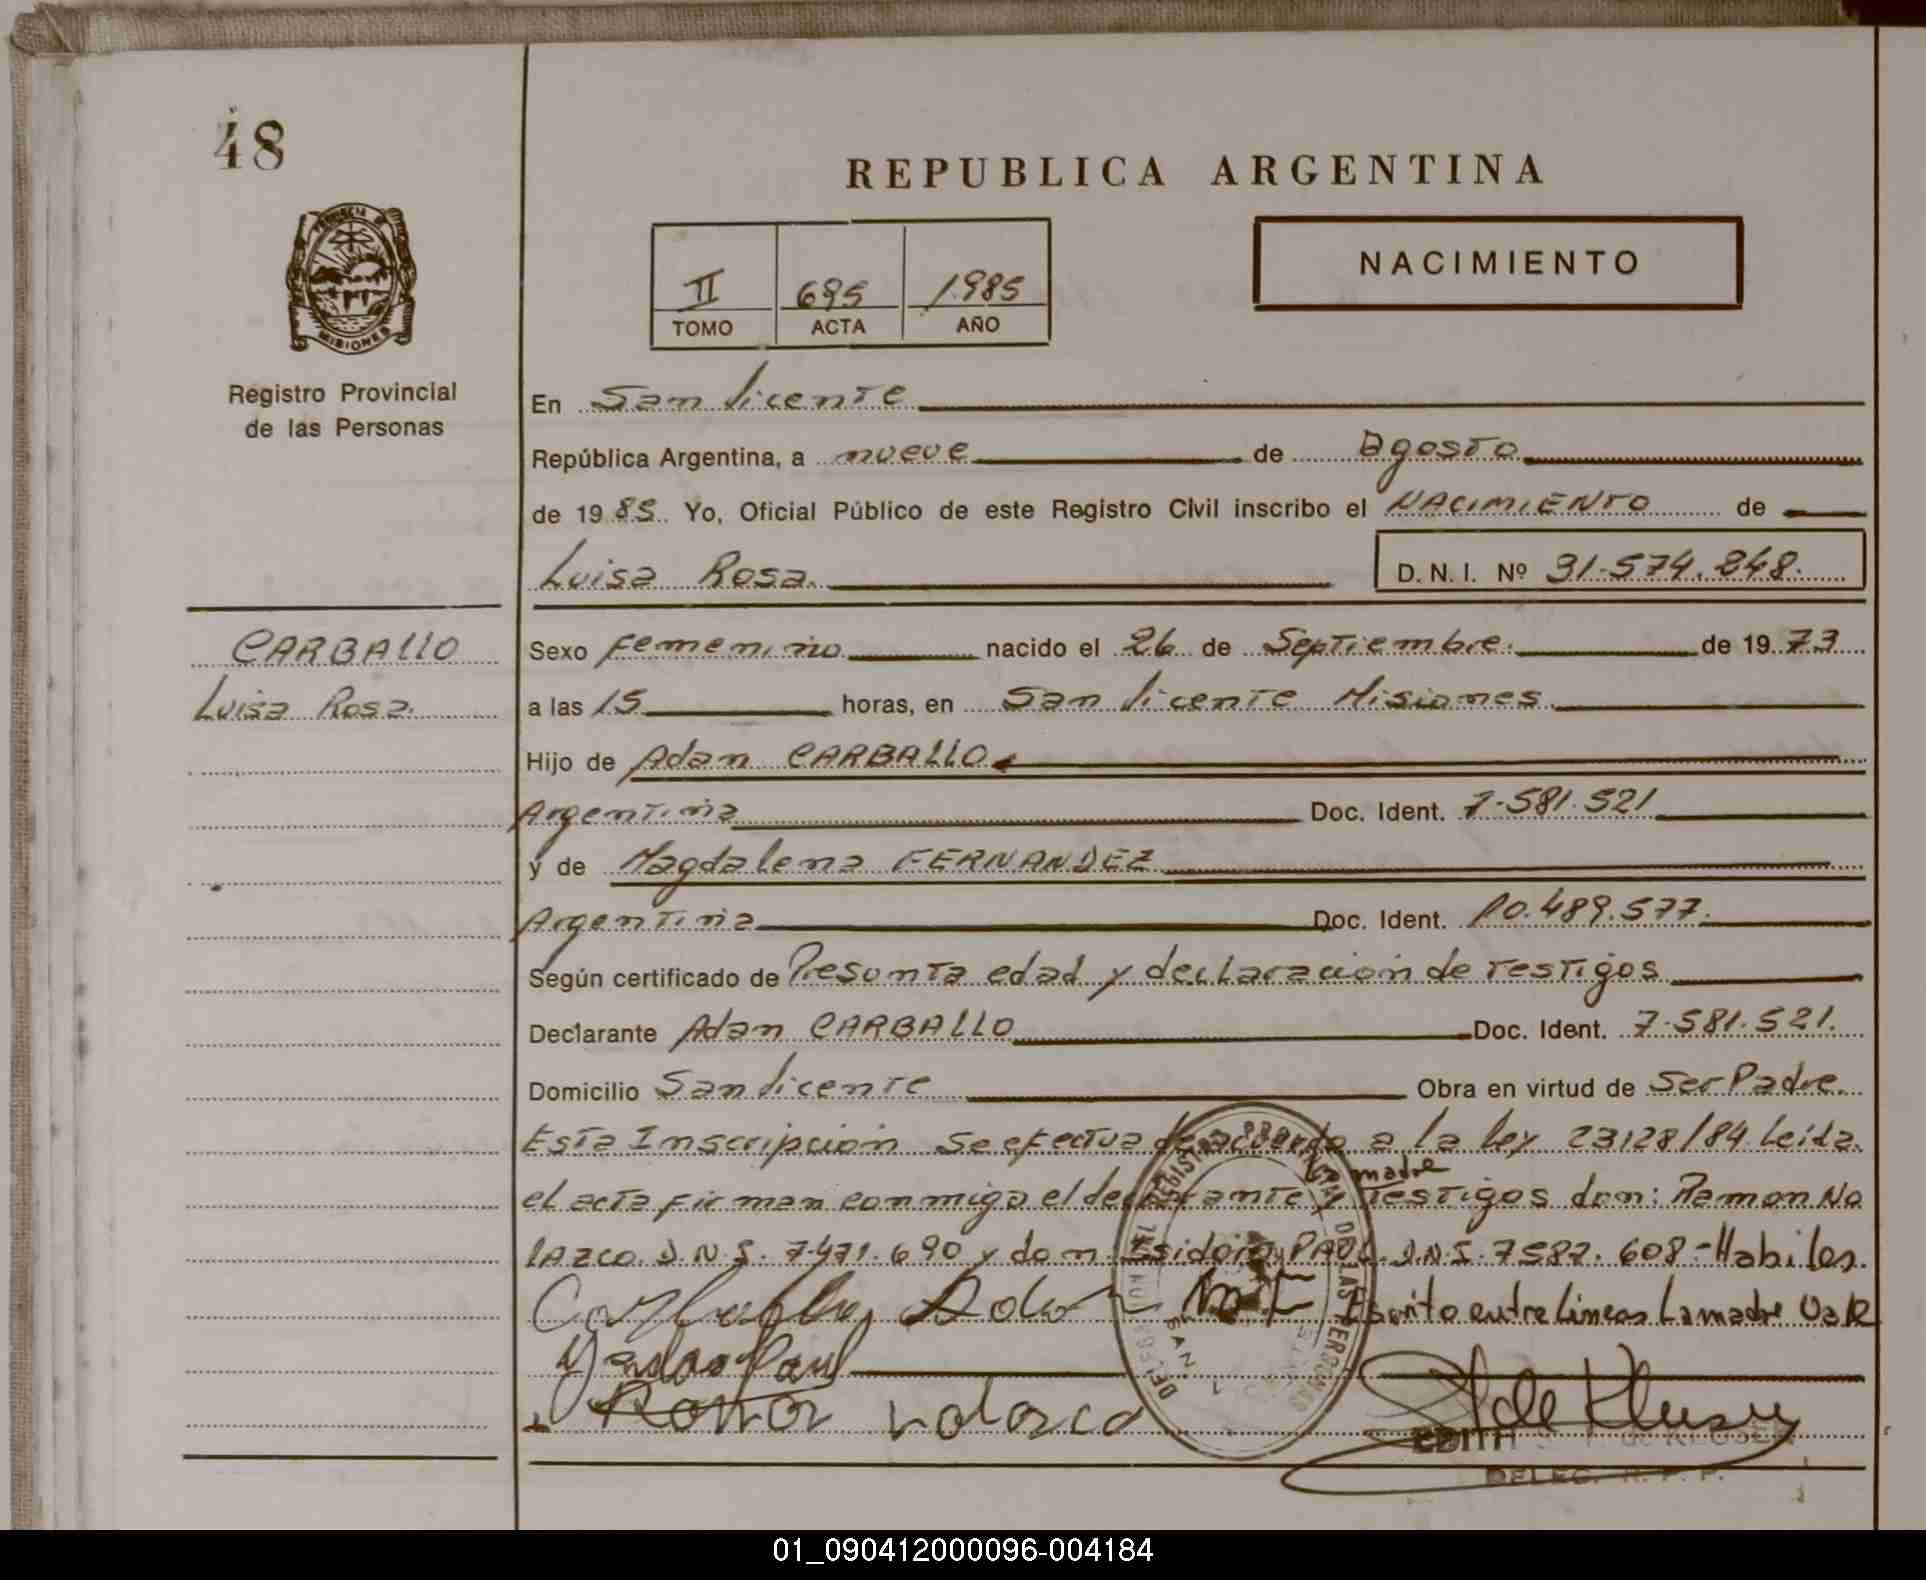 48
REPUBLICA ARGENTINA
PROVINCIA DE
MISIONES
II 695 1985
TOMO ACTA AÑO
NACIMIENTO
Registro Provincial
de las Personas
En San Vicente
República Argentina, a nueve de Agosto
de 1985. Yo, Oficial Público de este Registro Civil inscribo el NACIMIENTO de
Luisa Rosa. D. N. I. Nº 31.574.248.
CARBALLO
Luisa Rosa.
Sexo Femenino nacido el 26 de Septiembre. de 1973
a las 15 horas, en San Vicente Misiones.
Hijo de Adan CARBALLO
Argentina Doc. Ident. 7.581.521
y de Magdalena FERNANDEZ
Argentina Doc. Ident. 10.489.577.
Según certificado de Presunta edad y declaración de testigos
Declarante Adan CARBALLO Doc. Ident. 7.581.521.
Domicilio San Vicente Obra en virtud de Ser Padre.
Esta Inscripción se efectua de acuerdo a la ley 23128/84. Leida.
La madre
el acta firman conmigo el declarante y testigos don: Ramon No
lazco. D.N.I. 7.471.690 y don. Isidoro PAUL. D.N.I. 7587.608-Habiles.
Escrito entre Lineas La madre Vale
Ramon Nolasco
EDITH S. T. de KLUSEN
DELEG. R. P. P.
01_090412000096-004184